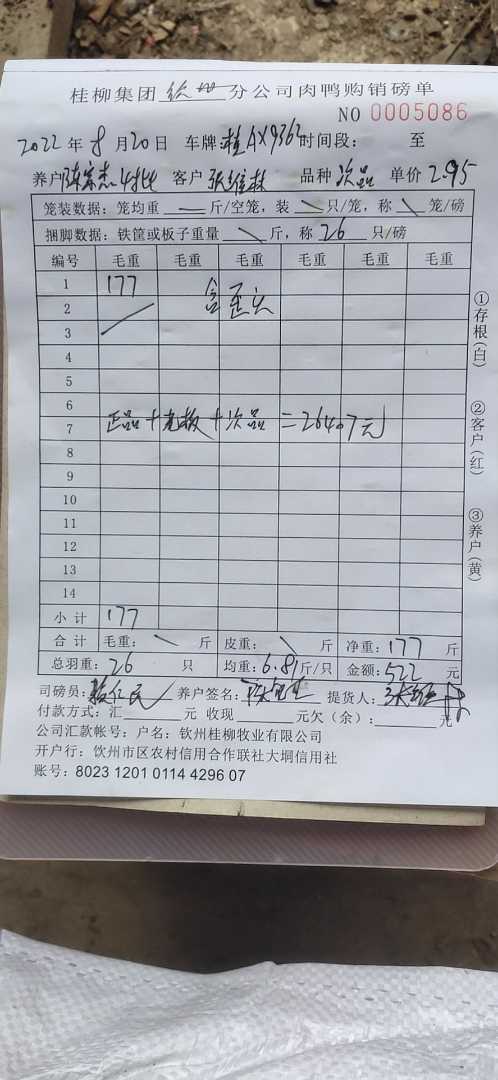 桂柳集团 钦州 分公司肉鸭购销磅单
NO 0005086
2022 年 8 月 20 日 车牌：桂AX9362 时间段： 至
养户 客户 品种 次品 单价 2.95
笼装数据：笼均重 斤/空笼，装 只/笼，称 笼/磅
捆脚数据：铁筐或板子重量 斤，称 26 只/磅
编号 毛重 毛重 毛重 毛重 毛重 毛重
1 177 含歪头
2
3
4
5
6
7 正品+老板+次品=26407元
8
9
10
11
12
13
14
小计 177
合计 毛重： 斤 皮重： 斤 净重：177 斤
总羽重：26 只 均重：6.81 斤/只 金额：522 元
司磅员： 养户签名： 提货人：
付款方式：汇 元 收现 元欠（余）： 元
公司汇款帐号：户名：钦州桂柳牧业有限公司
开户行：饮州市区农村信用合作联社大垌信用社
账号：8023 1201 0114 4296 07
①存根（白）
②客户（红）
③养户（黄）